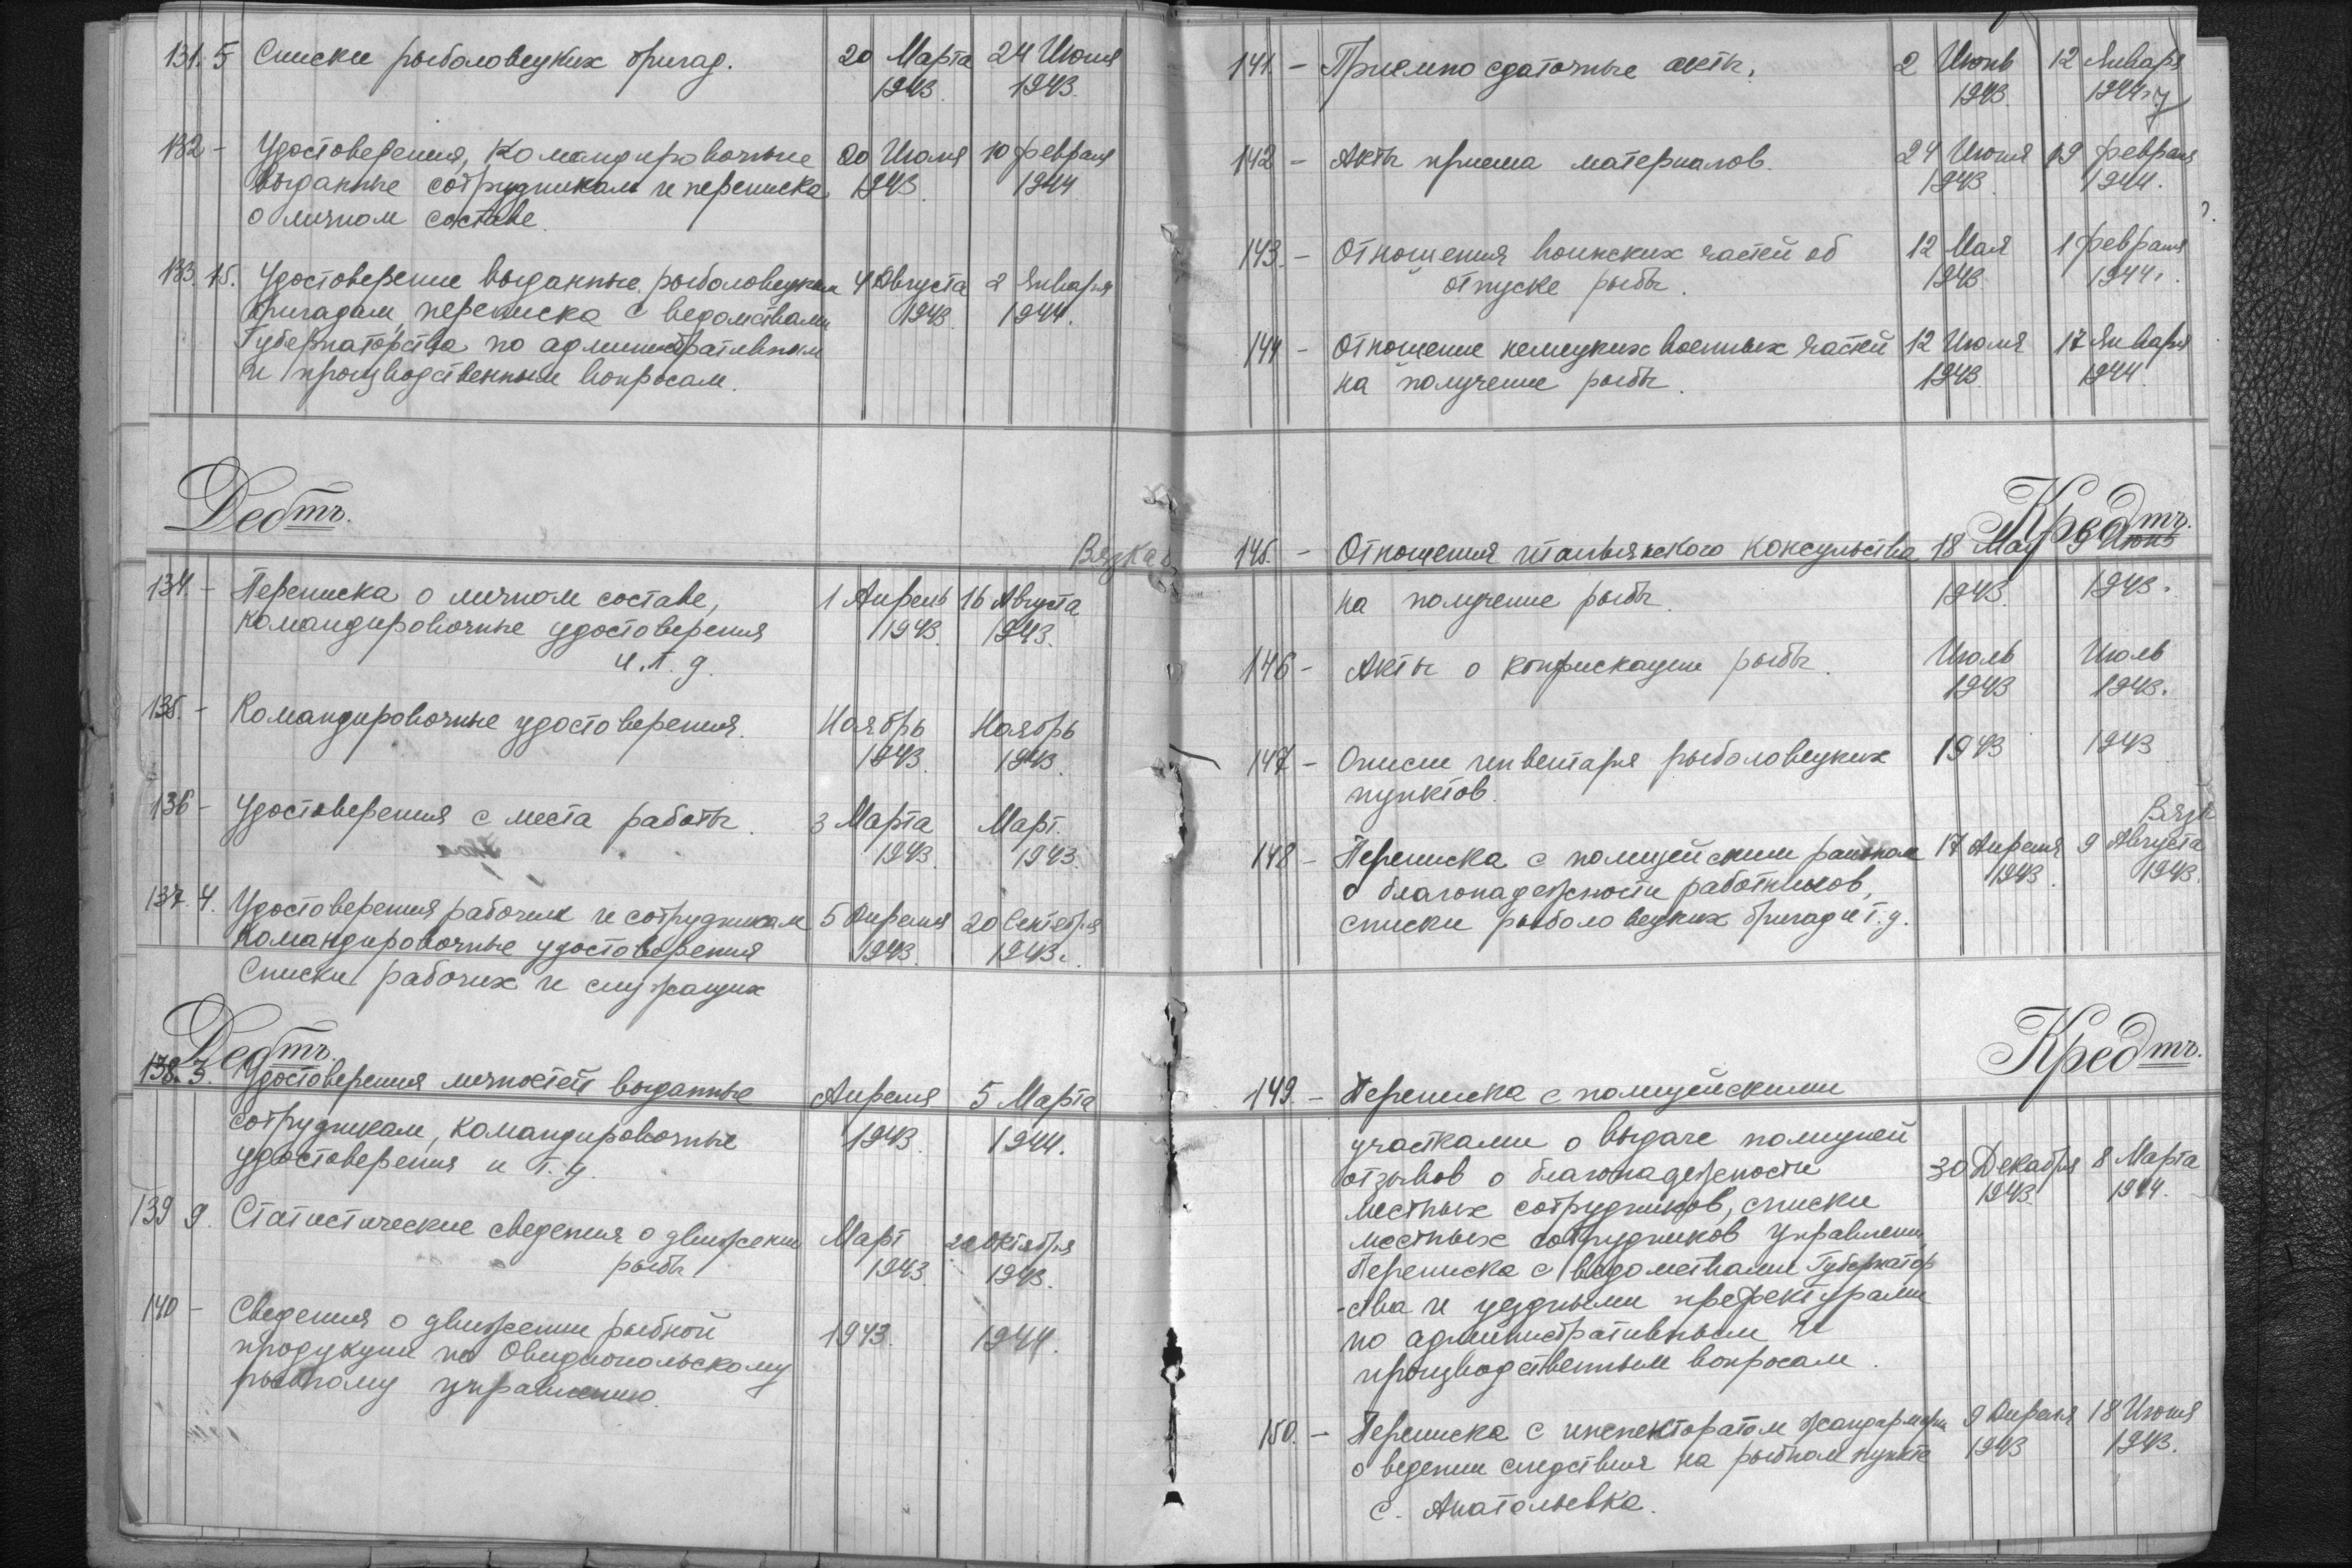 131. 5 Списки рыболовецких бригад. 20 Марта 24 Июня
1943. 1943.
132 - Удостоверения, командировочные 20 Июля 10 февраля
выданные сотрудникам и переписка 1943. 1944
о личном составе.
133. 15. Удостоверение выданные рыболовецким 4 Августа 2 Января
бригадам, переписка с ведомствами 1943. 1944.
Губернаторства по административным
и производственным вопросам.
Дебтъ.
Вязка
134. - Переписка о личном составе, 1 Апрель 16 Августа
командировочные удостоверения 1943. 1943.
и.т.д.
135. - Командировочные удостоверения. Ноябрь Ноябрь
1943. 1943.
136 - Удостоверения с места работы. 3 Марта Март.
1943. 1943.
137. 4. Удостоверения рабочим и сотрудникам 5 Апреля 20 Сентября
командировочные удостоверения 1943. 1943.
Списки рабочих и служащих
Дебтъ.
138. 3. Удостоверения личностей выданные Апреля 5 Марта
сотрудникам, командировочные 1943. 1944.
удостоверения и т.д.
139 9. Статистические сведения о движении Март 20 Октября
рыбы 1943. 1943.
140 - Сведения о движении рыбной
продукции по Овидиопольскому 1943. 1944.
рыбному управлению.
141. - Приемно сдаточные акты. 2 Июнь 12 Января
1943. 1944г
142 - Акты приема материалов. 24 Июня 19 февраля
1943. 1944.
143. - Отношения воинских частей об 12 Мая 1 февраля
отпуске рыбы. 1943 1944г.
144 - Отношение немецких военных частей 12 Июля 17 Января
на получение рыбы. 1943. 1944.
Кредтъ.
145. - Отношения итальянского консульства 18 Мау 9 Июнь
на получение рыбы. 1943. 1943.
146 - Акты о конфискации рыбы. Июль Июль
1943 1943.
147 - Описи инвентаря рыболовецких 1943 1943
пунктов.
Вязк
148 - Переписка с полицейским районом 17 Апреля 9 Августа
о благонадежности работников, 1943. 1943.
списки рыболовецких бригад и т.д.
Кредтъ.
149. - Переписка с полицейскими
участками о выдаче полицией
отзывов о благонадежности 30 Декабря 8 Марта
местных сотрудников, списки 1943. 1944.
местных сотрудников Управлени
Переписка с ведомствами Губернатор
-ства и уездными префектурами
по административным и
производственным вопросам.
150. - Переписка с инспекторатом жандармери 9 Апреля 18 Июня
о ведении следствия на рыбном пункте 1943 1943.
с. Анатольевка.